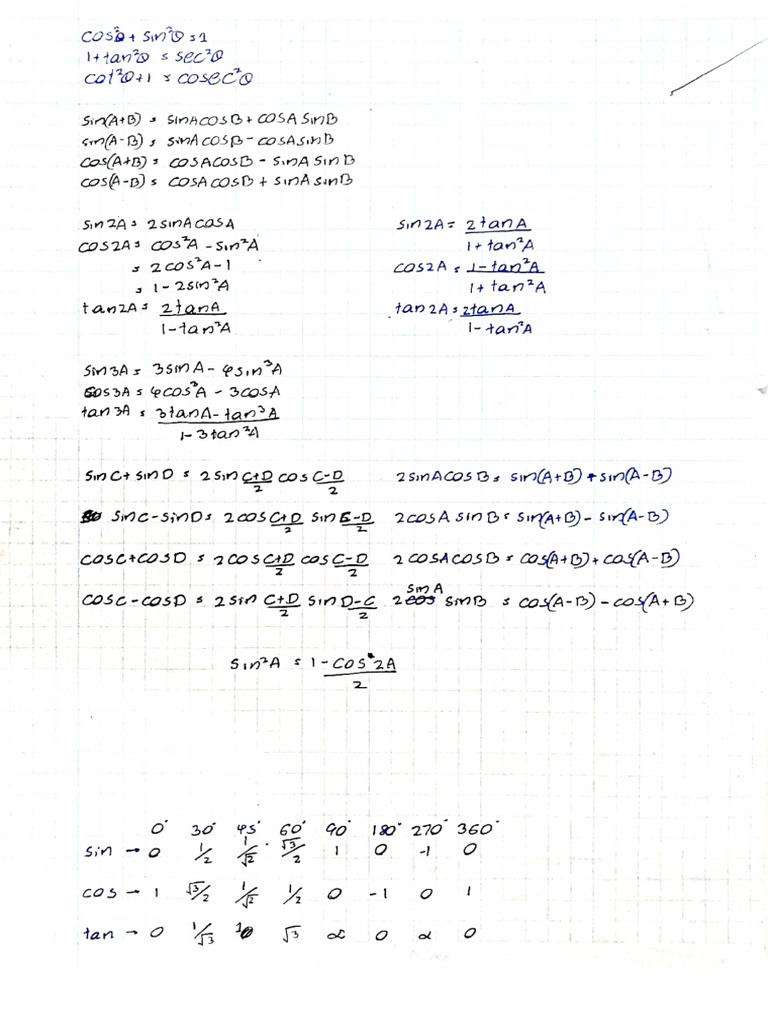 cos²θ + sin²θ = 1
1 + tan²θ = sec²θ
cot²θ + 1 = cosec²θ
sin(A+B) = sinAcosB + cosAsinB
sin(A-B) = sinAcosB - cosAsinB
cos(A+B) = cosAcosB - sinAsinB
cos(A-B) = cosAcosB + sinAsinB
sin2A = 2sinAcosA
cos2A = cos²A - sin²A
= 2cos²A - 1
= 1 - 2sin²A
tan2A = 2tanA
1 - tan²A
sin2A = 2tanA
1 + tan²A
cos2A = 1 - tan²A
1 + tan²A
tan2A = 2tanA
1 - tan²A
sin3A = 3sinA - 4sin³A
cos3A = 4cos³A - 3cosA
tan3A = 3tanA - tan³A
1 - 3tan²A
sinC + sinD = 2sin C+D/2 cos C-D/2 2sinAcosB = sin(A+B) + sin(A-B)
sinC - sinD = 2cos C+D/2 sin C-D/2 2cosAsinB = sin(A+B) - sin(A-B)
cosC + cosD = 2cos C+D/2 cos C-D/2 2cosAcosB = cos(A+B) + cos(A-B)
cosC - cosD = 2sin C+D/2 sin D-C/2 2sinA sinB = cos(A-B) - cos(A+B)
sin²A = 1 - cos2A
2
0° 30° 45° 60° 90° 180° 270° 360°
sin → 0 1/2 1/√2 √3/2 1 0 -1 0
cos → 1 √3/2 1/√2 1/2 0 -1 0 1
tan → 0 1/√3 1 √3 ∝ 0 ∝ 0